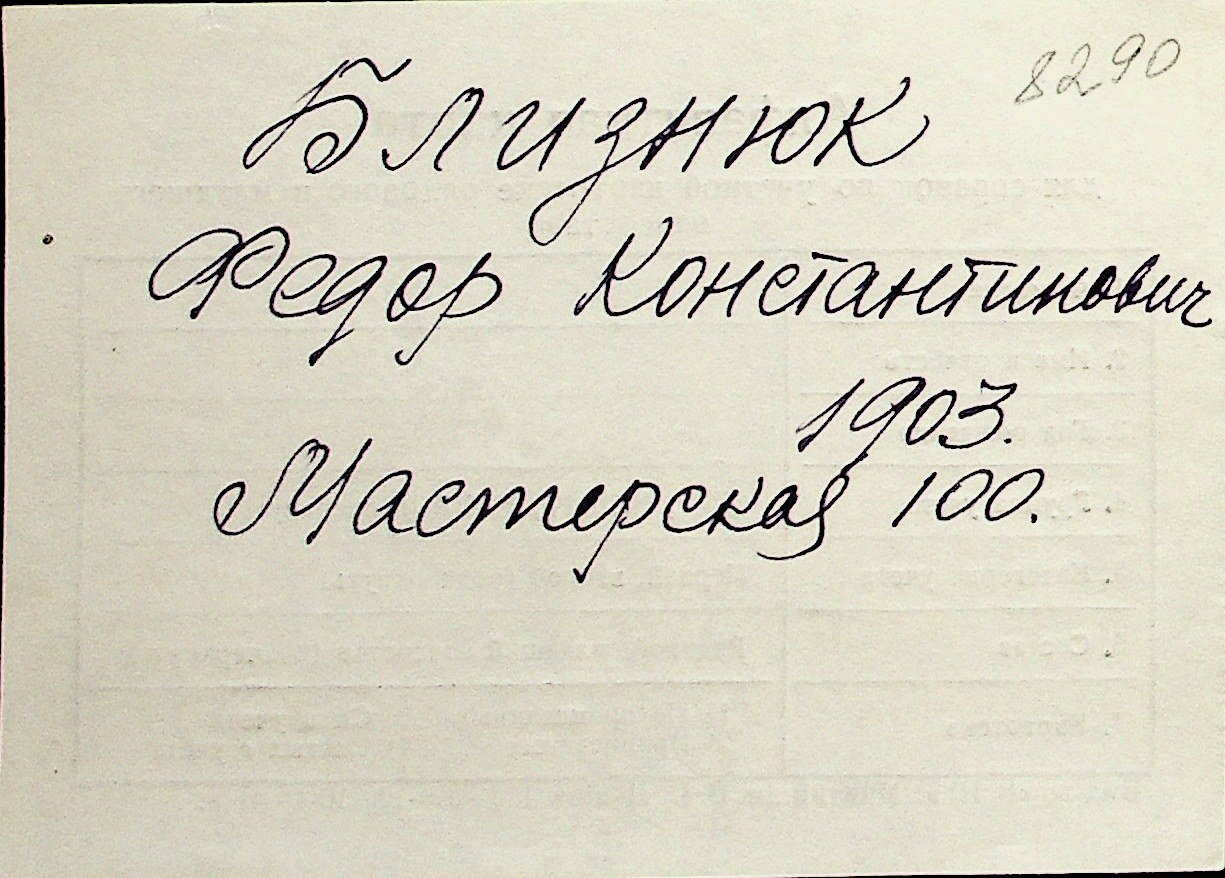 8290
Близнюк
Федор Константинович
1903.
Мастерская 100.